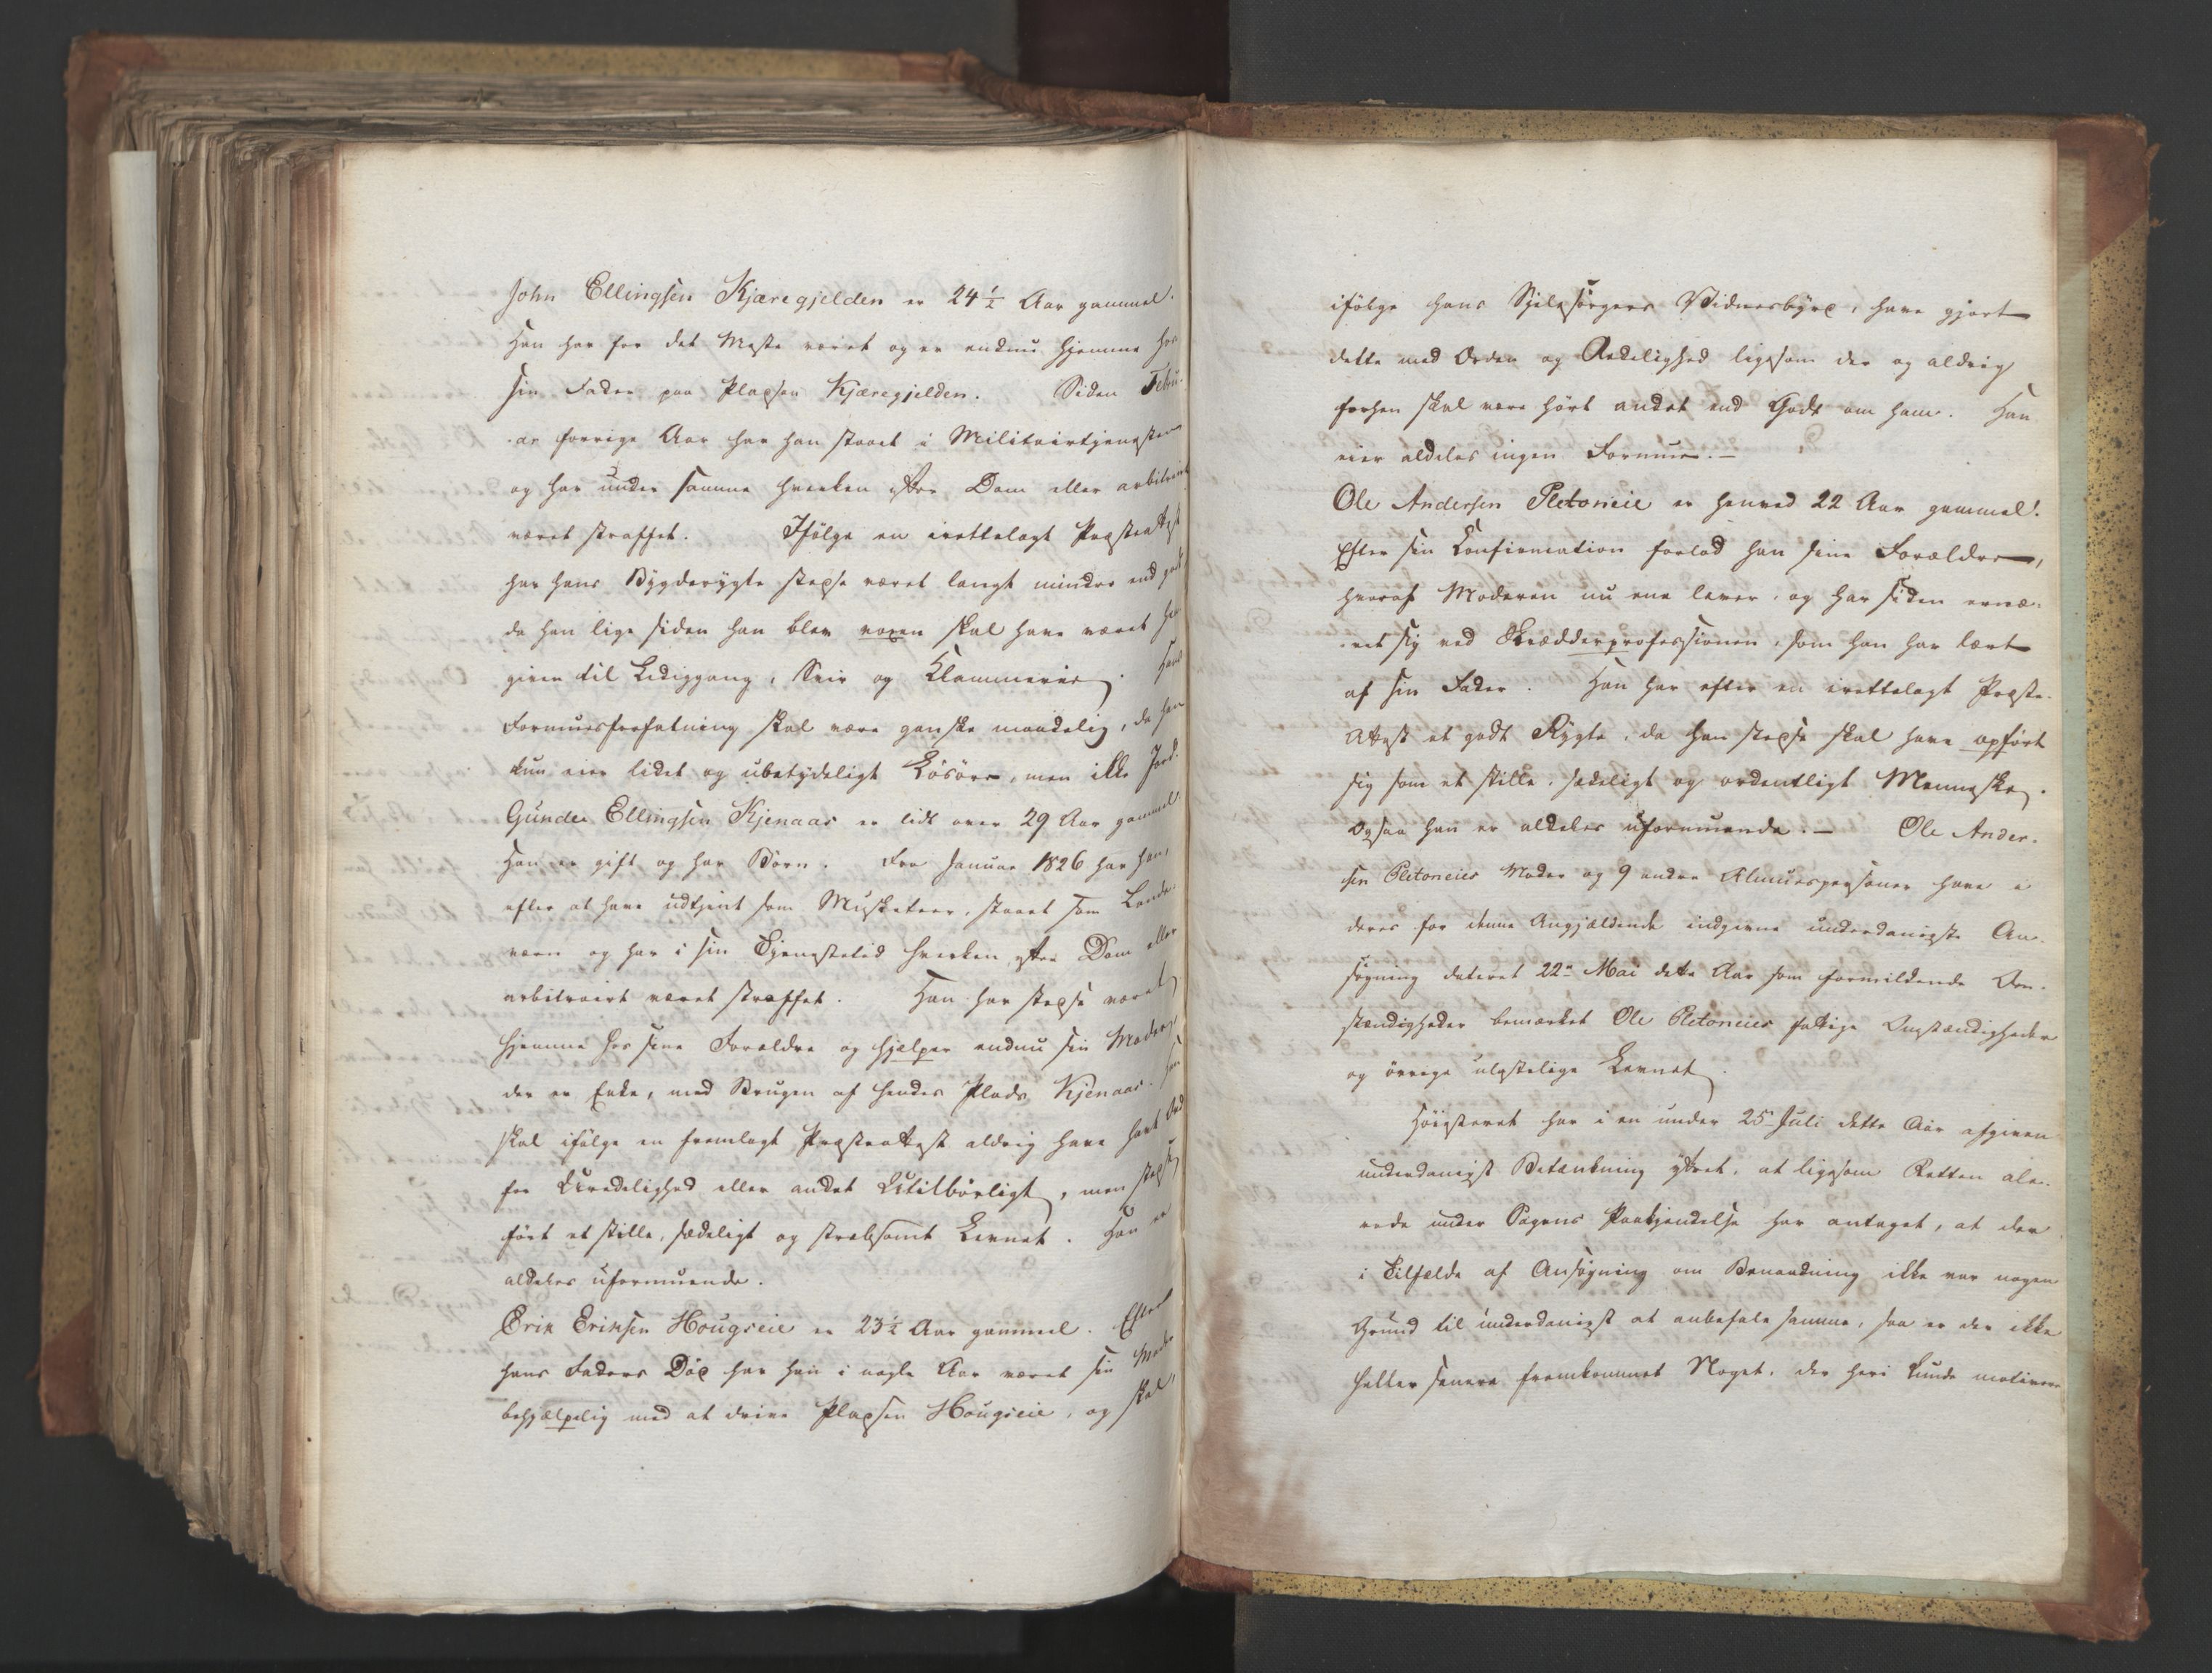 John Ellingsen Kjæregjelden er 24½ Aar gammel.
Han har for det Meste været og er endnu hjemme hos
sin Fader paa Pladsen Kjæregjelden. Siden Febru-
ar forrige Aar har han staaet i Militairtjenesten
og har under samme hverken efter Dom eller arbitrairt
været straffet. Ifølge en irettelagt Præsteattest
har hans Bygderygte stedse været langt mindre end godt
da han lige siden han blev voxen skal have været hen-
given til Lediggang, Sviir og Klammerier. Hans
Formuesforfatning skal være ganske maadelig, da han
kun eier lidet og ubetydeligt Løsøre, men ikke Jord.
Gunder Ellingsen Kjenaas er lidt over 29 Aar gammel
Han er gift og har Børn. Fra Januar 1826 har han,
efter at have udtjent som Musketeer, staaet som Lande-
værn og har i sin Tjenestetid hverken efter Dom eller
arbitrairt været straffet. Han har stedse været
hjemme hos sine Forældre og hjælper endnu sin Moder,
der er Enke, med Brugen af hendes Plads Kjenaas. Han
skal ifølge en fremlagt Præsteattest aldrig have havt Ord
for Uredelighed eller andet Utilbørligt, men stedse
ført et stille, sædeligt og stræbsomt Levnet. Han er
aldeles uformuende.
Erik Eriksen Hougseie er 23½ Aar gammel. Efter
hans Faders Død har han i nogle Aar været sin Moder
behjælpelig med at drive Pladsen Hougseie, og skal,
ifølge hans Sjelesørgers Vidnesbyrd, have gjort
dette med Orden og Redelighed ligesom der og aldrig
forhen skal være hørt andet end Godt om ham. Han
eier aldeles ingen Formue.—
Ole Andersen Pletoneie er henved 22 Aar gammel.
Efter sin Confirmation forlod han sine Forældre,
hvoraf Moderen nu ene lever, og har siden ernæ-
ret sig ved Skrædderprofessionen, som han har lært
af sin Fader. Han har efter en irettelagt Præste-
Attest et godt Rygte, da han stedse skal have opført
sig som et stille, sædeligt og ordentligt Menneske.
Ogsaa han er aldeles uformuende.— Ole Ander-
sen Pletoneies Moder og 9 andre Almuespersoner have i
deres for denne Angjældende indgivne underdanigste An-
søgning dateret 22de Mai dette Aar som formildende Om-
stændigheder bemærket Ole Pletoneies fattige Omstændigheder
og øvrige ulastelige Levnet.
Høiesteret har i en under 25 Juli dette Aar afgiven
underdanigst Betænkning yttret, at ligesom Retten alle-
rede under Sagens Paakjendelse har antaget, at der
i Tilfælde af Ansøgning om Benaadning ikke var nogen
Grund til underdanigst at anbefale samme, saa er der ikke
heller senere fremkommet Noget, der heri kunde motivere